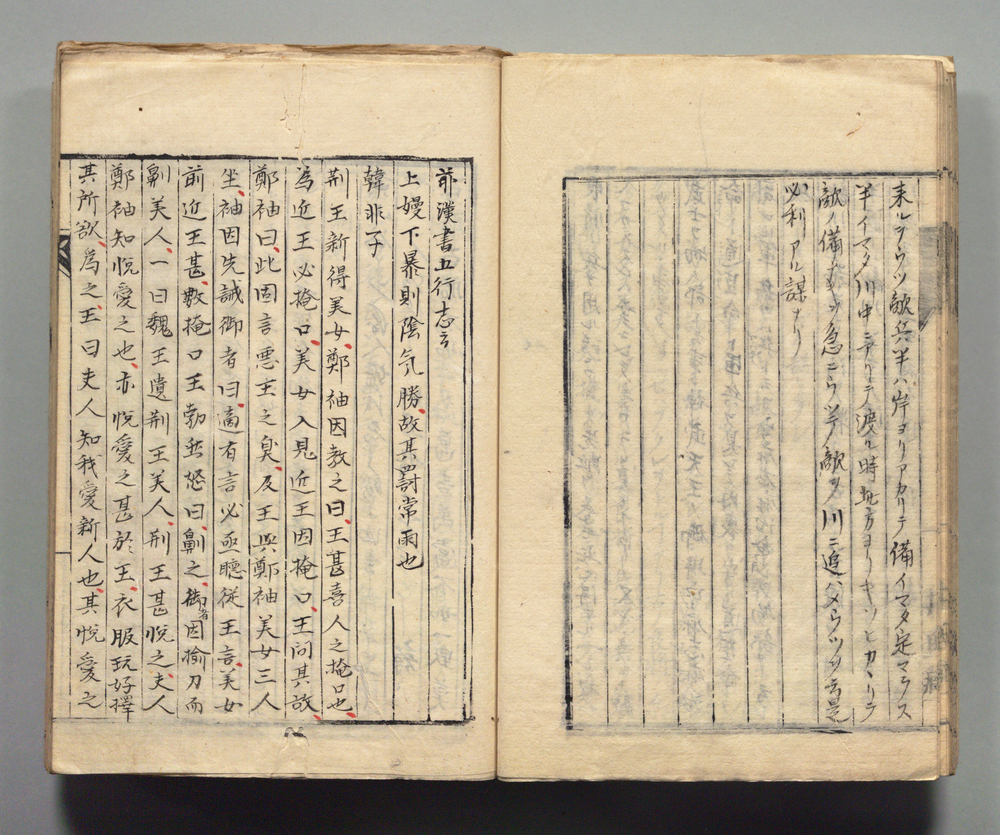 来ルヲウツ敵兵半ハ岸ヨリアカリテ備イマタ定マラス
半イマタ川中ニアリテ渡ル時此方ヨリキツトカヽリテ
敵ノ備 急ニウツ 敵ヲ川ニ追ハメウツヲ云是
必利アル謀ナリ
前漢書五行志云
上嫚下暴則陰気勝故其罰常雨也
韓非子
荆王新得美女鄭袖因教之曰王甚喜人之掩口也
為近王必掩口美女入見近王因掩口王問其故
鄭袖曰此固言悪王之臭及王與鄭袖美女三人
坐袖因先誡御者曰適有言必亟聴従王言美女
前近王甚數掩口王勃然怒曰劓之御者因揄刀而
劓美人一曰魏王遺荆王美人荆王甚悦之夫人
鄭袖知悦愛之也亦悦愛之甚於王衣服玩好擇
其所欲為之王曰夫人知我愛新人也其悦愛之